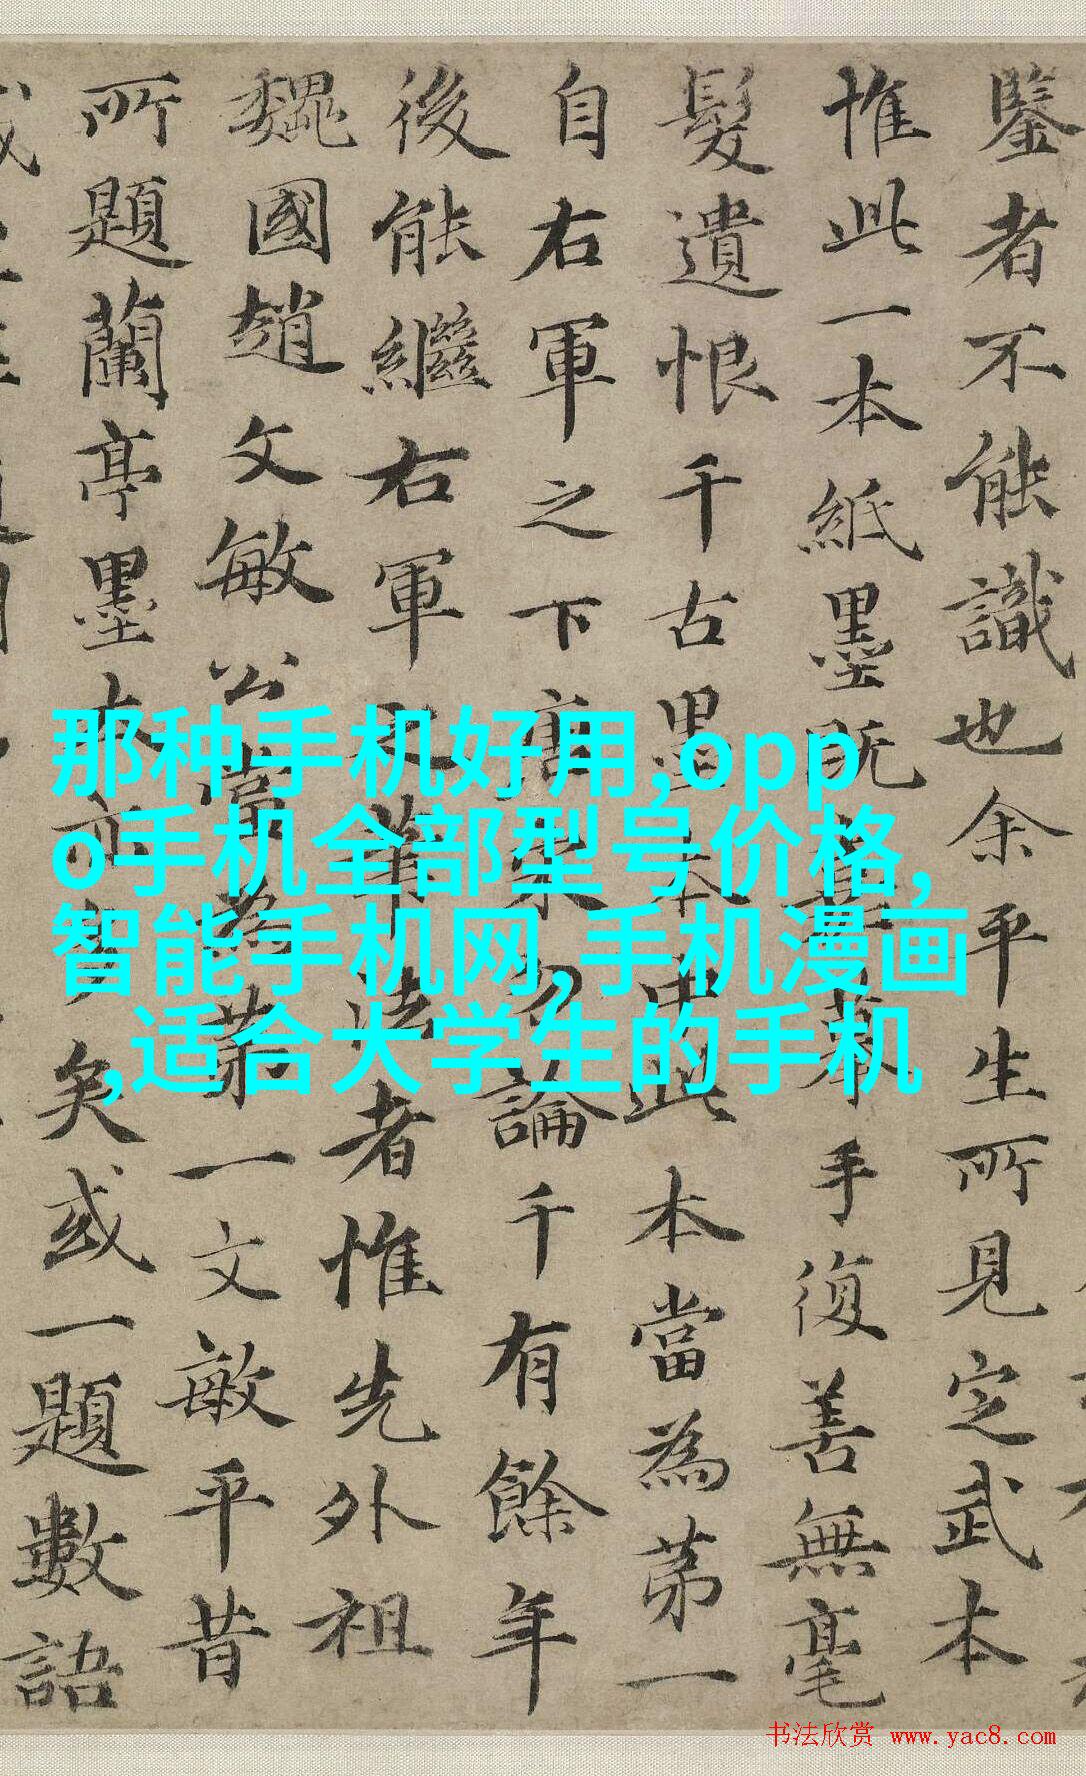 鑒者不能識也余平生所見定武本
惟此一本紙墨既摹手復善無毫
髮遺恨千古墨本中此本當為苐一
自右軍之下唐宋勿論千有餘年
後能繼右軍之筆法者惟先外祖
魏國趙文敏公當為苐一文敏平昔
所題蘭亭墨本亦多矣或一題數語
那种手机好用,opp
o手机全部型号价格,
智能手机网,手机漫画
,适合大学生的手机
书法欣赏 www.yac8.com